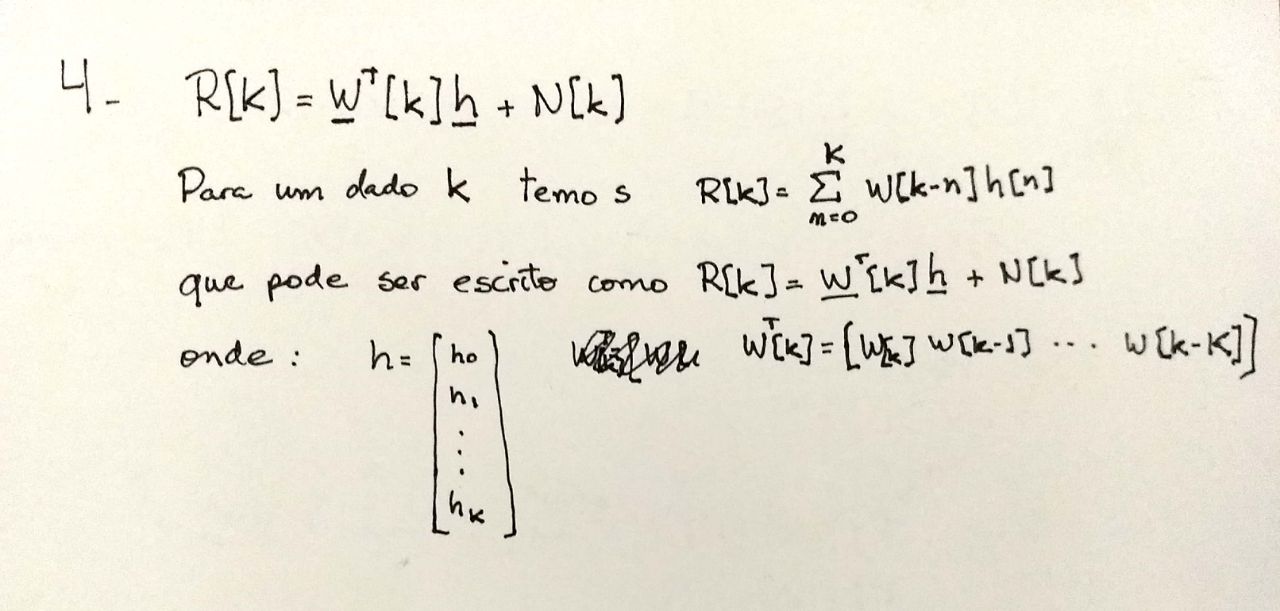 4- R[k] = W^T[k] h + N[k]
Para um dado k temos R[k] = ∑_{n=0}^{K} W[k-n] h[n]
que pode ser escrito como R[k] = W^T[k] h + N[k]
onde: h = [h0 h1 ⋮ hK] W^T[k] = [W[k] W[k-1] ... W[k-K]]